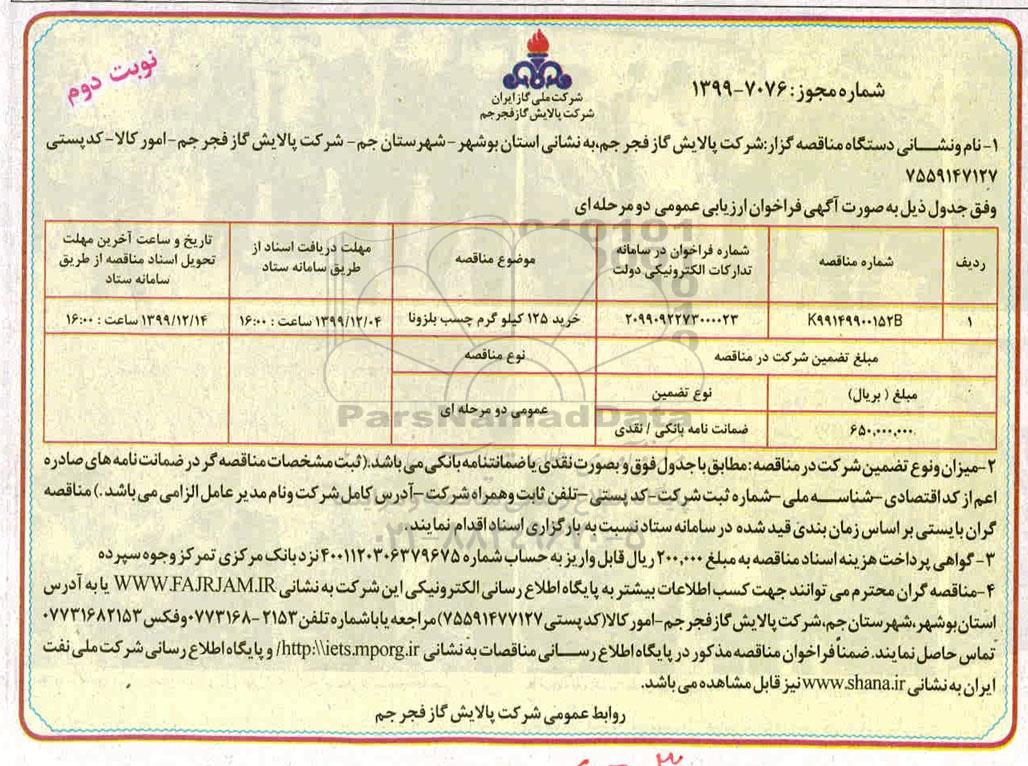 نوبت دوم
شرکت ملی گاز ایران
شرکت پالایش گاز فجر جم
شماره مجوز: ۷۰۷۶-۱۳۹۹
۱- نام ونشـــانی دستگاه مناقصه گزار:شرکت پالایش گاز فجر جم،به نشانی استان بوشهر - شهرستان جم - شرکت پالایش گاز فجر جم-امور کالا-کدپستی
۷۵۵۹۱۴۷۱۲۷
وفق جدول ذیل به صورت آگهی فراخوان ارزیابی عمومی دو مرحله ای
ردیف
شماره مناقصه
شماره فراخوان در سامانه
تدارکات الکترونیکی دولت
موضوع مناقصه
مهلت دریافت اسناد از
طریق سامانه ستاد
تاریخ و ساعت آخرین مهلت
تحویل اسناد مناقصه از طریق
سامانه ستاد
۱
K۹۹۱۴۹۹۰۰۱۵۲B
۲۰۹۹۰۹۲۲۷۳۰۰۰۰۲۳
خرید ۱۲۵ کیلو گرم چسب بلزونا
۱۳۹۹/۱۲/۰۴ ساعت : ۱۶:۰۰
۱۳۹۹/۱۲/۱۴ ساعت : ۱۶:۰۰
مبلغ تضمین شرکت در مناقصه
نوع مناقصه
مبلغ ( بریال)
نوع تضمین
عمومی دو مرحله ای
۶۵۰,۰۰۰,۰۰۰
ضمانت نامه بانکی / نقدی
ParsNamadData
۲-میزان ونوع تضمین شرکت در مناقصه: مطابق با جدول فوق و بصورت نقدی یا ضمانتنامه بانکی می باشد.(ثبت مشخصات مناقصه گر در ضمانت نامه های صادره
اعم از کد اقتصادی -شناســه ملی -شماره ثبت شرکت-کد پستی -تلفن ثابت وهمراه شرکت -آدرس کامل شرکت ونام مدیر عامل الزامی می باشد.) مناقصه
گران بایستی بر اساس زمان بندی قید شده در سامانه ستاد نسبت به بارگزاری اسناد اقدام نمایند.
۳-گواهی پرداخت هزینه اسناد مناقصه به مبلغ ۲۰۰,۰۰۰ ریال قابل واریز به حساب شماره ۴۰۰۱۱۲۰۳۰۶۳۷۹۶۷۵ نزد بانک مرکزی تمرکز وجوه سپرده
۴-مناقصه گران محترم می توانند جهت کسب اطلاعات بیشتر به پایگاه اطلاع رسانی الکترونیکی این شرکت به نشانی WWW.FAJRJAM.IR یا به آدرس
استان بوشهر،شهرستان جم،شرکت پالایش گاز فجر جم-امور کالا(کدپستی ۷۵۵۹۱۴۷۷۱۲۷)مراجعه یا باشماره تلفن ۲۱۵۳-۰۷۷۳۱۶۸وفکس۰۷۷۳۱۶۸۲۱۵۳
تماس حاصل نمایند. ضمناً فراخوان مناقصه مذکور در پایگاه اطلاع رســانی مناقصات به نشانی http:\\iets.mporg.ir/ و پایگاه اطلاع رسانی شرکت ملی نفت
ایران به نشانی www.shana.ir نیز قابل مشاهده می باشد.
روابط عمومی شرکت پالایش گاز فجر جم